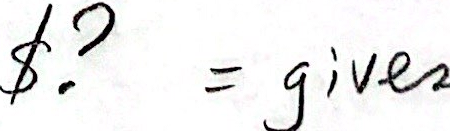 $? = gives